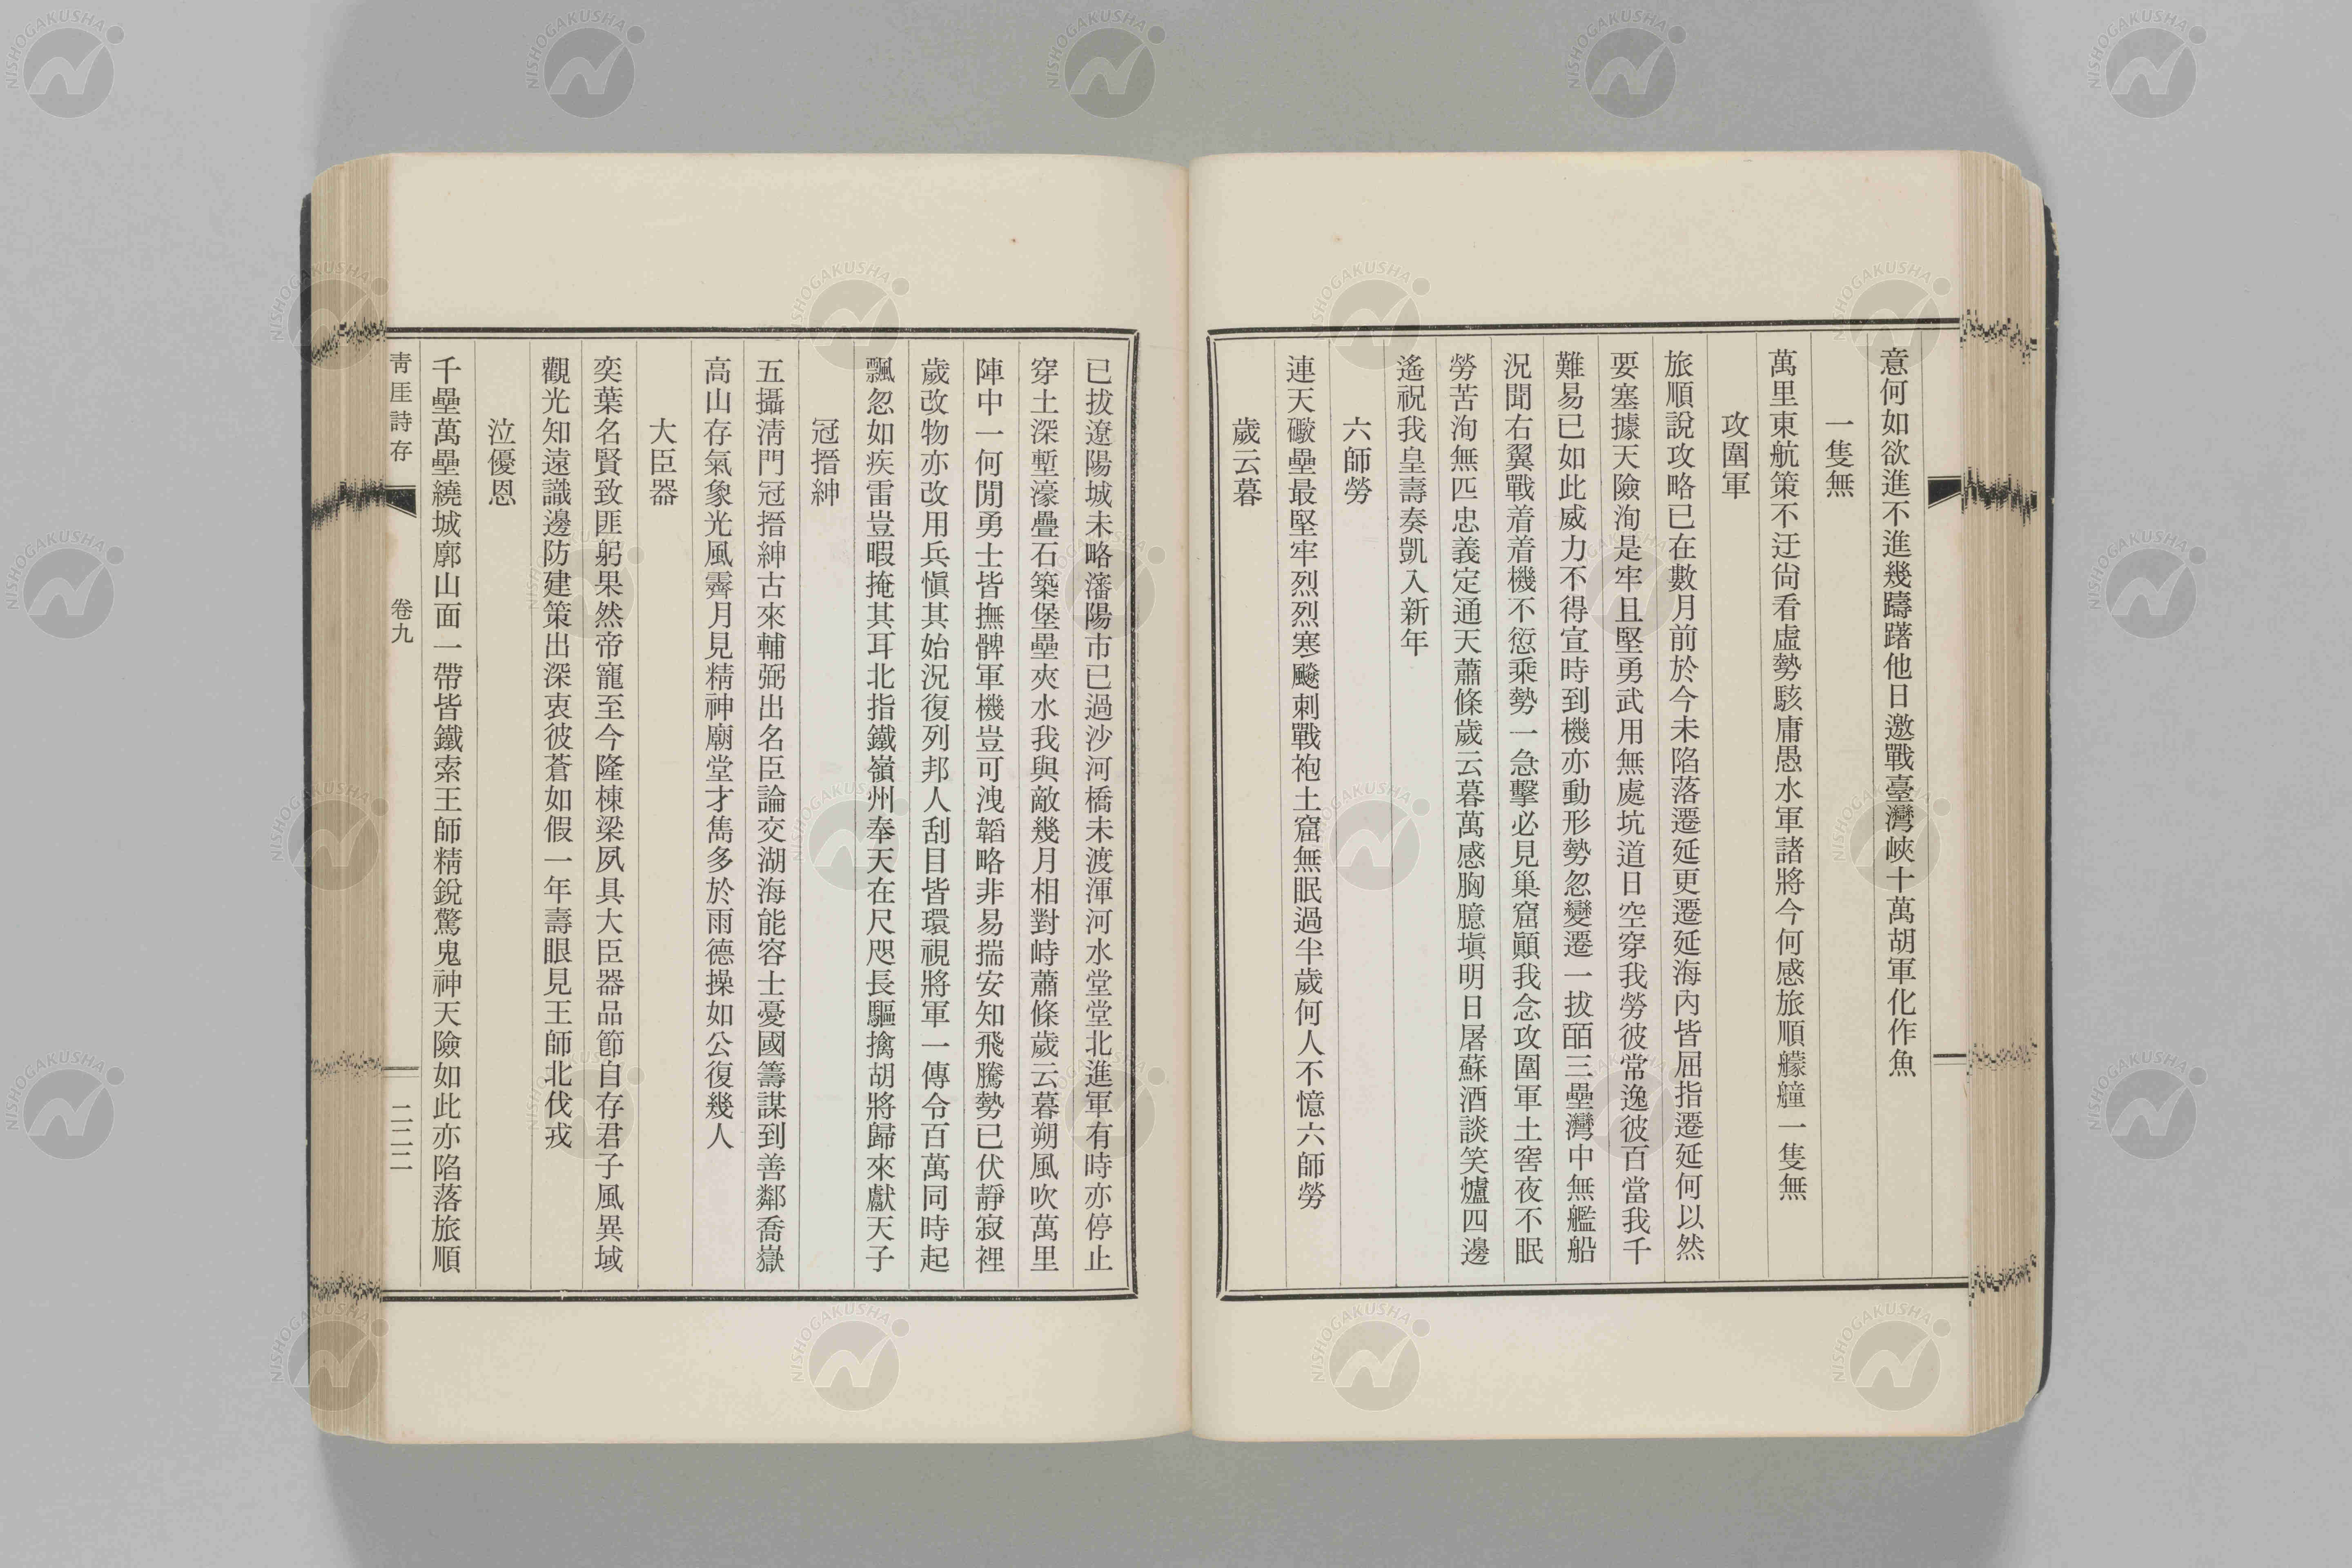 意何如欲進不進幾躊躇他日邀戰臺灣峽十萬胡軍化作魚
一隻無
萬里東航策不迂尙看虛勢駭庸愚水軍諸將今何感旅順艨艟一隻無
攻圍軍
旅順說攻略已在數月前於今未陷落遷延更遷延海內皆屈指遷延何以然
要塞據天險洵是牢且堅勇武用無處坑道日空穿我勞彼常逸彼百當我千
難易已如此威力不得宣時到機亦動形勢忽變遷一拔皕三壘灣中無艦船
況聞右翼戰着着機不愆乘勢一急擊必見巢窟顚我念攻圍軍土窖夜不眠
勞苦洵無匹忠義定通天蕭條歲云暮萬感胸臆塡明日屠蘇酒談笑爐四邊
遙祝我皇壽奏凱入新年
六師勞
連天礮壘最堅牢烈烈寒飈刺戰袍土窟無眠過半歲何人不憶六師勞
歲云暮
已拔遼陽城未略瀋陽市已過沙河橋未渡渾河水堂堂北進軍有時亦停止
穿土深塹濠疊石築堡壘夾水我與敵幾月相對峙蕭條歲云暮朔風吹萬里
陣中一何閒勇士皆撫髀軍機豈可洩韜略非易揣安知飛騰勢已伏靜寂裡
歲改物亦改用兵愼其始況復列邦人刮目皆環視將軍一傳令百萬同時起
飄忽如疾雷豈暇掩其耳北指鐵嶺州奉天在尺咫長驅擒胡將歸來獻天子
冠搢紳
五攝淸門冠搢紳古來輔弼出名臣論交湖海能容士憂國籌謀到善鄰喬嶽
高山存氣象光風霽月見精神廟堂才雋多於雨德操如公復幾人
大臣器
奕葉名賢致匪躬果然帝寵至今隆棟梁夙具大臣器品節自存君子風異域
觀光知遠識邊防建策出深衷彼蒼如假一年壽眼見王師北伐戎
泣優恩
千壘萬壘繞城廓山面一帶皆鐵索王師精銳驚鬼神天險如此亦陷落旅順
靑厓詩存
卷九
二二二
NISHOGAKUSHA